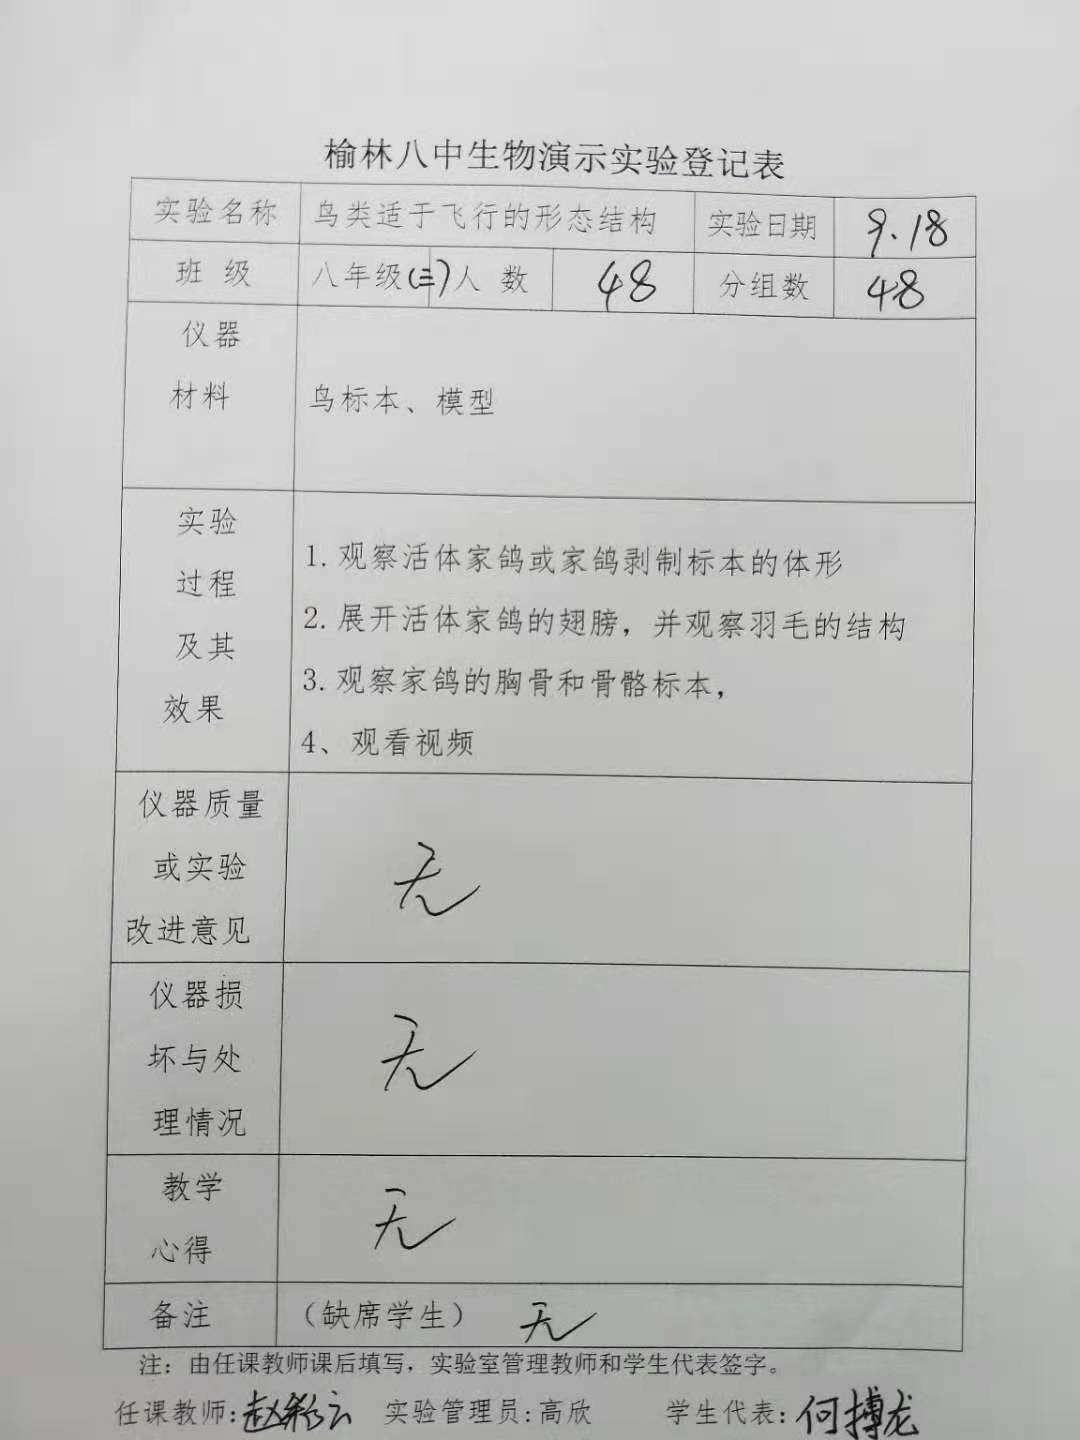 榆林八中生物演示实验登记表
实验名称 鸟类适于飞行的形态结构 实验日期 9.18
班 级 八年级(三)人 数 48 分组数 48
仪器
材料
鸟标本、模型
实验
过程
及其
效果
1.观察活体家鸽或家鸽剥制标本的体形
2.展开活体家鸽的翅膀，并观察羽毛的结构
3.观察家鸽的胸骨和骨骼标本，
4、观看视频
仪器质量
或实验
改进意见
无
仪器损
坏与处
理情况
无
教学
心得
无
备注 （缺席学生） 无
注：由任课教师课后填写，实验室管理教师和学生代表签字。
任课教师：赵彩云 实验管理员：高欣 学生代表：何搏龙